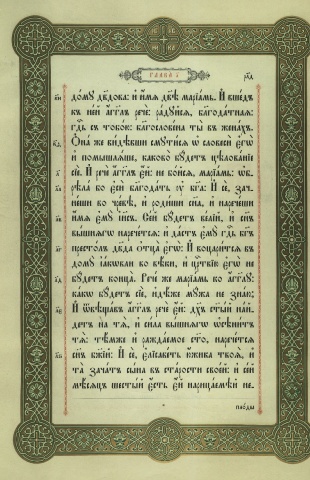 ГЛАВА̀ а҃
дѡ́мꙋ дв҃дова: и҆ и҆́мѧ дв҃ѣ марїа́мь. И҆ вше́дъ
къ не́й а҆́гг҃лъ речѐ: ра́дꙋйсѧ, бл҃года́тнаѧ:
гд҃ь съ тобо́ю: благослове́на ты̀ въ жена́хъ.
Ѻ҆на́ же ви́дѣвши смꙋти́сѧ ѡ҆ словесѝ є҆гѡ̀
и҆ помышлѧ́ше, каково̀ бꙋ́детъ цѣлова́нїе
сїѐ. И҆ речѐ а҆́гг҃лъ є҆́й: не бо́йсѧ, марїа́мь: ѡ҆б
рѣла́ бо є҆сѝ благода́ть ᲂу҆ бг҃а. И҆ сѐ, зач
не́ши во чре́вѣ, и҆ роди́ши сн҃а, и҆ нарече́ши
и҆́мѧ є҆мꙋ̀ і҆и҃съ. Се́й бꙋ́детъ ве́лїй, и҆ сн҃ъ
вы́шнѧгѡ нарече́тсѧ: и҆ да́стъ є҆мꙋ̀ гд҃ь бг҃ъ
престо́лъ дв҃да ѻ҆тца̀ є҆гѡ̀: И҆ воцр҃и́тсѧ въ
домꙋ̀ і҆а́кѡвли во вѣ́ки, и҆ црⷭ҇твїю є҆гѡ̀ не
бꙋ́детъ конца̀. Рече́ же марїа́мь ко а҆́гг҃лꙋ:
ка́кѡ бꙋ́детъ сїѐ, и҆дѣ́же мꙋ́жа не зна́ю;
И҆ ѿвѣща́въ а҆́гг҃лъ речѐ є҆́й: дх҃ъ ст҃ы́й на́й
детъ на тѧ̀, и҆ си́ла вы́шнѧгѡ ѡ҆сѣни́тъ
тѧ̀: тѣ́мже и҆ ражда́емое ст҃о, нарече́тсѧ
сн҃ъ бж҃їй: И҆ сѐ, є҆лїсаве́ть ю҆́жика твоѧ̀, и҆
та̀ зача́тъ сы́на въ ста́рости свое́й: и҆ се́й
мѣ́сѧцъ шесты́й є҆́сть є҆́й нарица́емѣй не
пло́ды